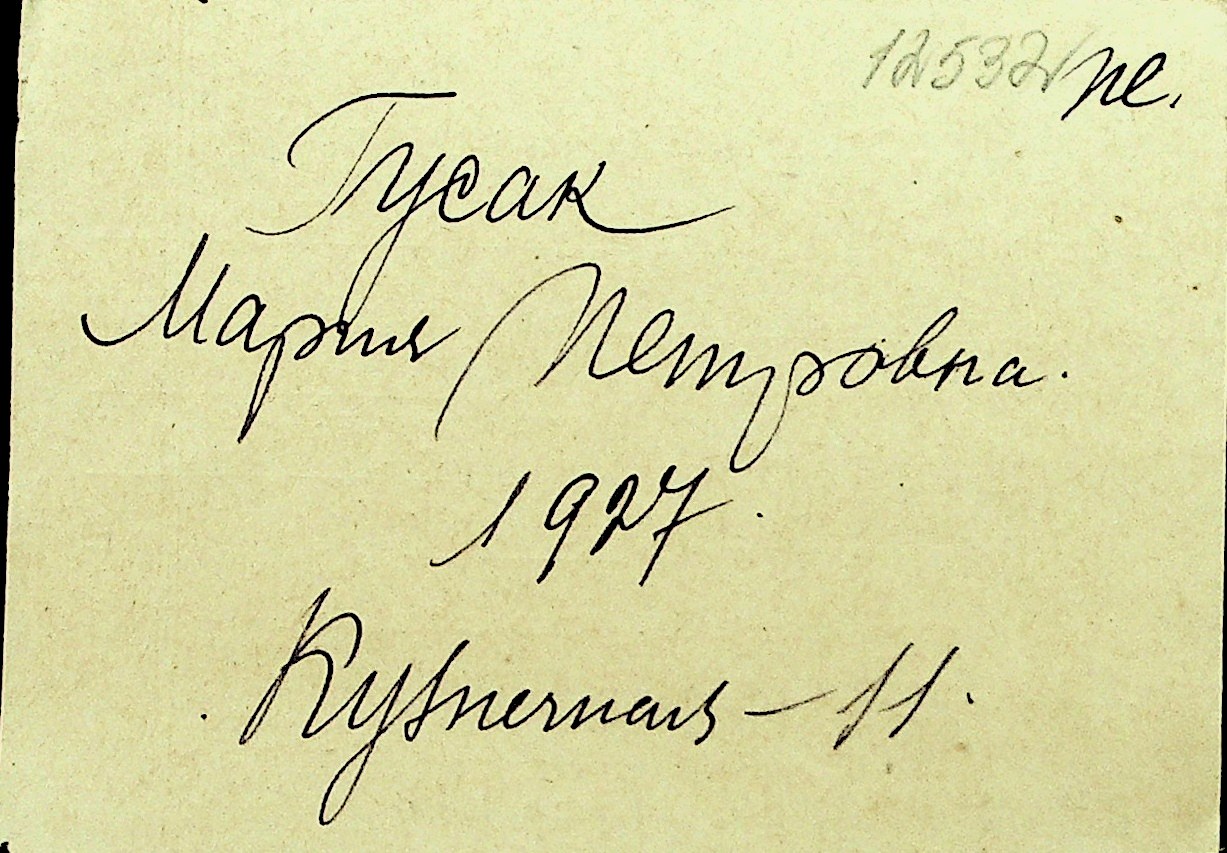 12532 пе.
Гусак
Мария Петровна.
1927.
Кузнечная – 11.